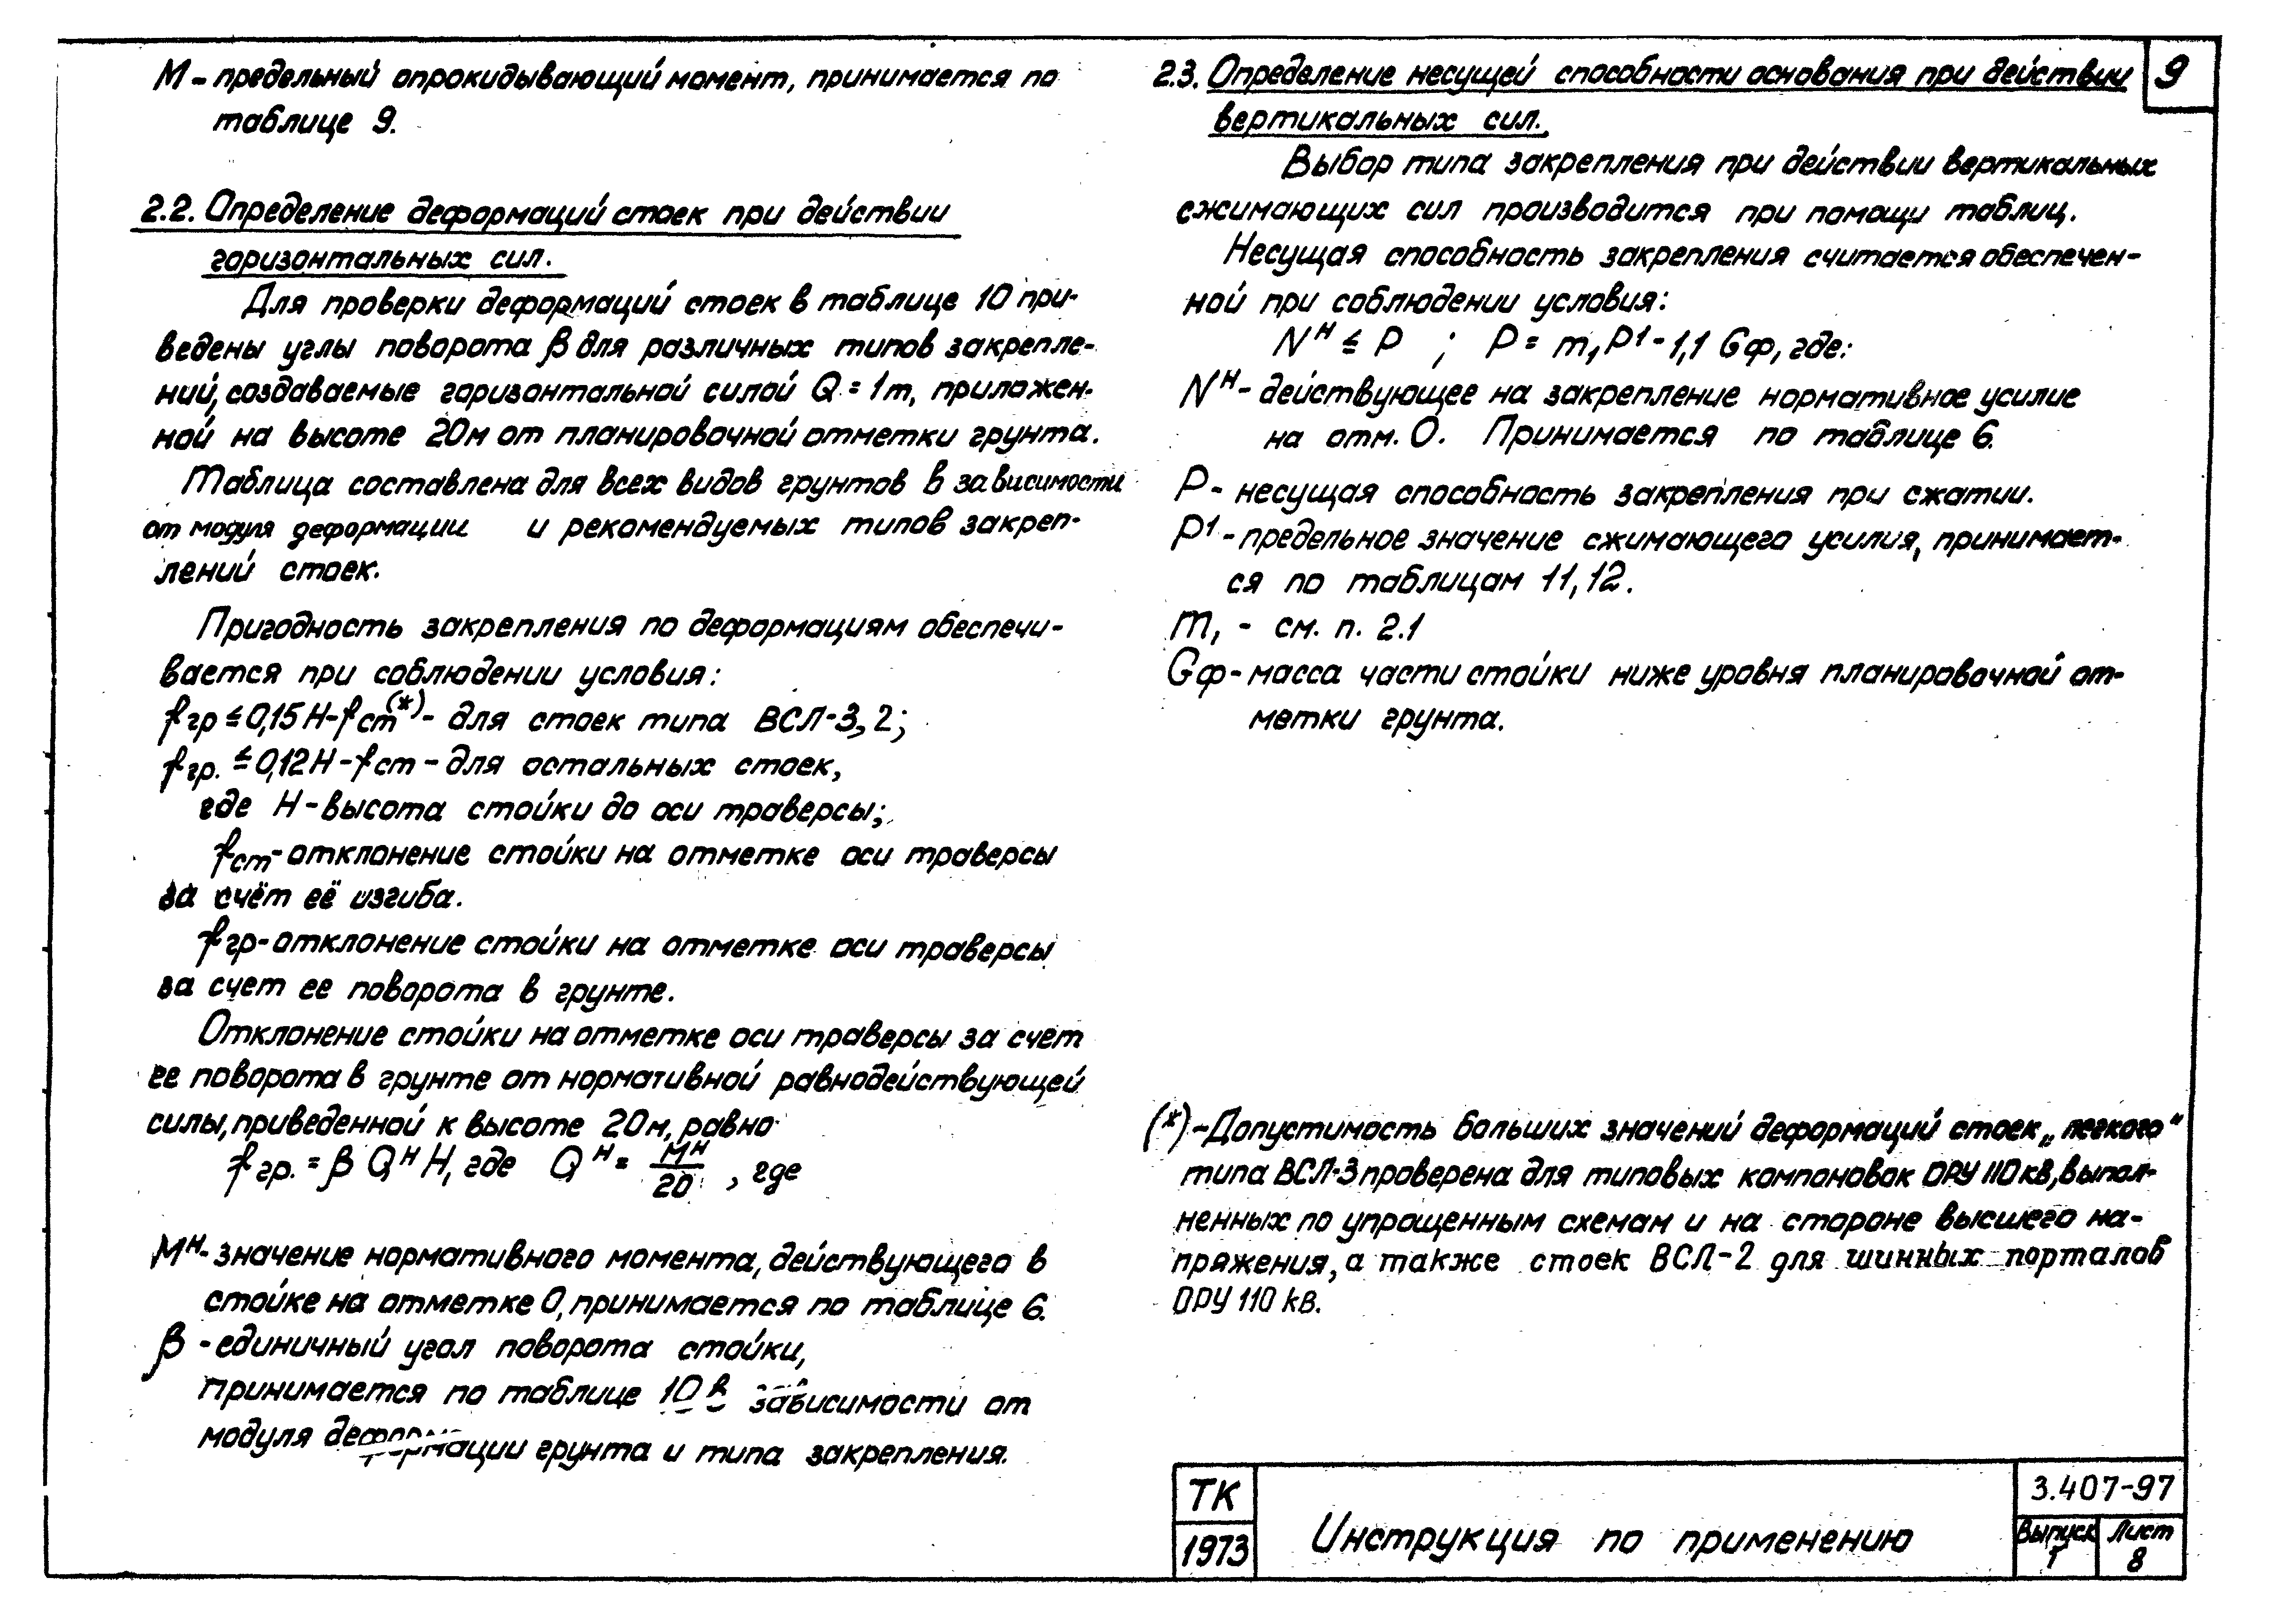 М - предельный опрокидывающий момент, принимается по
таблице 9.
2.2. Определение деформаций стоек при действии
горизонтальных сил.
Для проверки деформаций стоек в таблице 10 при-
ведены углы поворота β для различных типов закрепле-
ний, создаваемые горизонтальной силой Q = 1т, приложен-
ной на высоте 20м от планировочной отметки грунта.
Таблица составлена для всех видов грунтов в зависимости
от модуля деформации и рекомендуемых типов закреп-
лений стоек.
Пригодность закрепления по деформациям обеспечи-
вается при соблюдении условия:
fгр ≤ 0,15 Н - fст (*) - для стоек типа ВСЛ-3,2;
fгр. ≤ 0,12 Н - fст - для остальных стоек,
где Н - высота стойки до оси траверсы;
fст - отклонение стойки на отметке оси траверсы
за счёт её изгиба.
fгр - отклонение стойки на отметке оси траверсы
за счет ее поворота в грунте.
Отклонение стойки на отметке оси траверсы за счет
ее поворота в грунте от нормативной равнодействующей
силы, приведенной к высоте 20м, равно
fгр. = β Qᴴ Н, где Qᴴ = Мᴴ/20, где
Мᴴ - значение нормативного момента, действующего в
стойке на отметке 0, принимается по таблице 6.
β - единичный угол поворота стойки,
принимается по таблице 10 в зависимости от
модуля деформации грунта и типа закрепления.
2.3. Определение несущей способности основания при действии
вертикальных сил.
Выбор типа закрепления при действии вертикальных
сжимающих сил производится при помощи таблиц.
Несущая способность закрепления считается обеспечен-
ной при соблюдении условия:
Nᴴ ≤ Р ; Р = m₁ Р¹ - 1,1 Gф, где:
Nᴴ - действующее на закрепление нормативное усилие
на отм. 0. Принимается по таблице 6.
Р - несущая способность закрепления при сжатии.
Р¹ - предельное значение сжимающего усилия, принимает-
ся по таблицам 11, 12.
m₁ - см. п. 2.1
Gф - масса части стойки ниже уровня планировочной от-
метки грунта.
(*) - Допустимость больших значений деформаций стоек „легкого"
типа ВСЛ-3 проверена для типовых компоновок ОРУ 110 кВ, выпол-
ненных по упрощенным схемам и на стороне высшего на-
пряжения, а также стоек ВСЛ-2 для шинных порталов
ОРУ 110 кВ.
9
ТК
1973
Инструкция по применению
3.407-97
Выпуск Лист
I 8